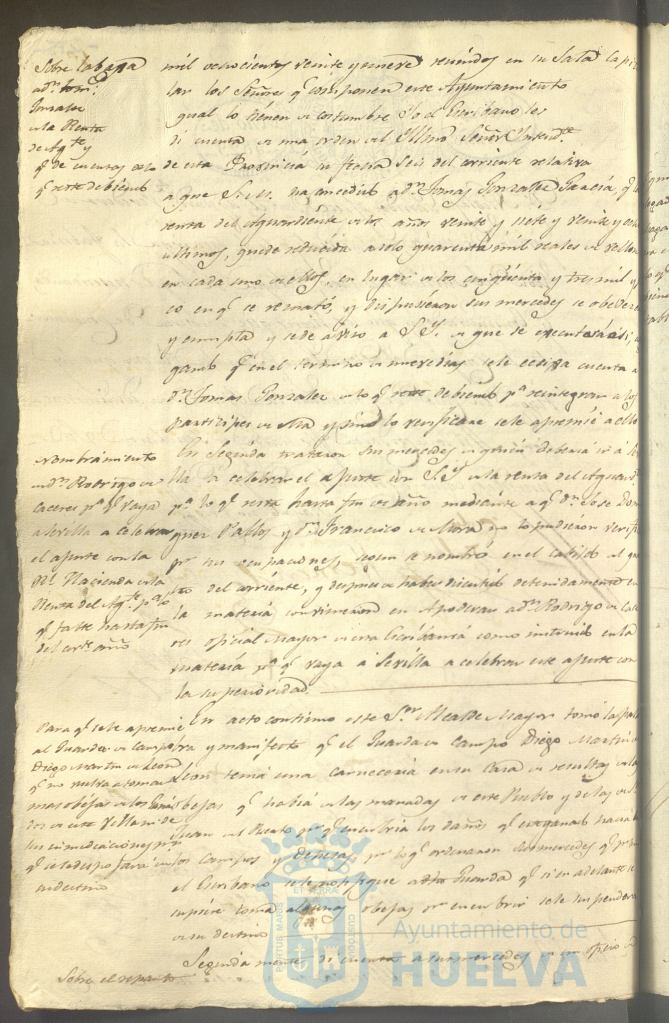 Sobre la baja
a Dn. Tom.
Gonzalez
en la Renta
de Agte y
qe. de cuentas
qe. reste debiendo
mil ochocientos veinte y nueve reunidos en su Sala Capitu
lar los Señores qe. componen este Ayuntamiento
qual lo tienen de costumbre Yo el Escribano les
di cuenta de una orden del Illmo Señor Intende.
de esta Provincia su fecha Seis del corriente relativa
a que S. M. ha concedido a Dn. Tomas Gonzalez Garcia qe. la
renta del Aguardiente en los años veinte y siete y veinte y ocho
ultimos, quede reducida a solo quarenta mil reales de vellon
en cada uno de ellos, en lugar de los cinquenta y tres mil y
co en qe. se remató, y dispusieron sus mercedes se obedezca
y cumpla y se dé aviso a S. Y. de que se executará asi,
qe. en el termino de nueve dias se le exija cuenta a
Dn. Tomas Gonzalez de lo qe. reste debiendo pa. reintegrar a los
participes de ella y sino lo verificare se le apremie a ello
Nombramiento
en Dn. Rodrigo de
Caceres pa. qe. vaya
a Sevilla a celebrar
el ajuste con la
Rl. Hacienda en la
Renta del Agte. pa. lo
qe. falte hasta fin
del corrte. año
En Seguida trataron sus mercedes de quien deberia ir a Sevi
lla a celebrar el ajuste con S. Y. en la renta del Aguardte.
pa. lo qe. resta hasta fin de año mediante a qe. Dn. Jose Domin
guez Pallos y Dn. Francisco de Mora no lo pudieron verificar
pr. sus ocupaciones, como se nombró en el cabildo del qua
tro del corriente, y despues de haber discutido detenidamente en
la materia convinieron en Apoderar a Dn. Rodrigo de Cace
res oficial Mayor de esta Escribania como instruido en la
materia pa. qe. vaya a Sevilla a celebrar este ajuste con
la superioridad.
Para qe. se le apremie
al Guarda de Campo
Diego Martin de Leon
qe. no vuelva a tomar
mas obejas de los Gana
dos de esta Villa ni de
sus inmediaciones pr.
en destino
En acto continuo este Sor. Alcalde Mayor tomó la pala
bra y manifestó qe. el Guarda de Campo Diego Martin de
Leon tenia una carneceria en su Casa de resultas de las
obejas qe. habia de las manadas de este Pueblo y de las de San
Juan del Puerto pr. qe. encubria los daños qe. los ganados hacian
en los campos y dehesas, pr. lo qe. ordenaron sus mercedes qe. pr. mi
el Escribano se le notifique a dho Guarda qe. si en adelante se
supiere toma algunas obejas pr. encubrir se le suspenderá
de su destino
Sobre el reparto
Seguidamente di cuenta a sus mercedes de un oficio
Ayuntamiento de
HUELVA